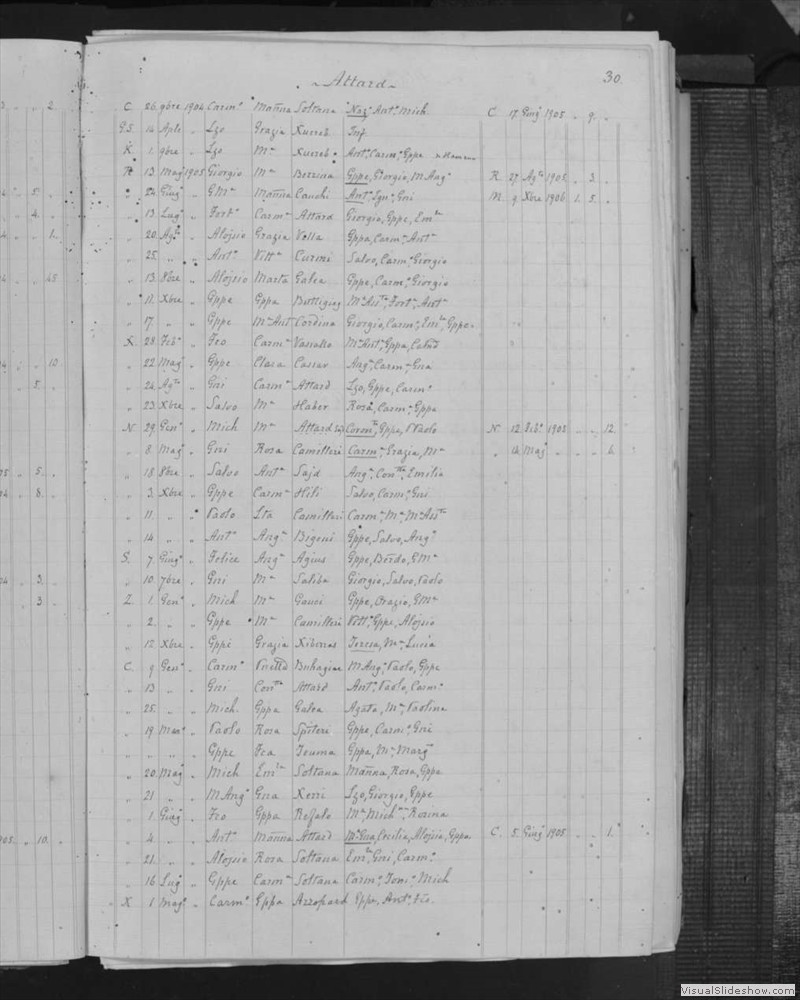 Attard 30.
C. 26. 9bre. 1904 Carmo Manna Soltana Naz. Anto. Mich. C. 17. Giug 1905 " 9. "
G.S. 14 Aple " Lzo Grazia Xuereb Inf.
K. 1. 9bre. " Lzo Ma Xuereb Anto, Carmo, Gppe
13. Mag 1905 Giorgio Ma Bezzina Gppe, Giorgio, M.Ang. K. 27. Ago 1905 " 3. "
24. Giugo " G.Ma Manna Cauchi Anto, Igno, Gni M. 9 Xbre 1906 1. 5. "
" 13. Lugo " Forto Carma Attard Giorgio, Gppe, Ema
" 20. Ago " Aloisio Grazia Vella Gppa, Carmo, Anta
" 25. " " Anto Vitta Curmi Salvo, Carmo, Giorgio
" 13. 8bre " Aloisio Marta Galea Gppe, Carmo, Giorgio
" 11. Xbre " Gppe Gppa Buttigieg Ma Anta, Forto, Anto
" 17. " " Gppe Ma Ant. Cordina Giorgio, Carmo, Ema, Gppe.
X. 28. Febo " Fco Carma Vassallo Ma Anta, Gppa,
" 22 Mag " Gppe Clara Cassar Ango, Carmo, Gna
" 24. Ago " Gni Carma Attard Lzo, Gppe, Carmo
" 23. Xbre " Salvo Ma Haber Rosa, Carmo, Gppe
N. 29. Geno " Mich Ma Attard Gppe, Paolo N. 12. Febo 1905 " " 12.
" 8. Mag " Gni Rosa Camilleri Carmo, Grazia, Ma " 14. Mag " " 6.
" 18. 8bre " Salvo Anta Sajd Ango, Conta, Emilia
" 3. Xbre " Gppe Carma Hili Salvo, Carmo, Gni
" 11. " " Paolo Lta Camilleri Carmo, Ma, Ma Anta
" 14 " " Anto Anga Bigeni Gppe, Salvo, Ango
S. 7. Giugo " Felice Anga Agius Gppe, Bordo, G.Ma
" 10. 7bre " Gni Ma Saliba Giorgio, Salvo, Paolo
Z. 1. Geno " Mich Ma Gauci Gppe, Orazio, G.Ma
" 2. " " Gppe Ma Camilleri Vitto, Gppe, Aloisio
" 12. Xbre " Gppe Grazia Xiberras Teresa, Ma, Lucia
C. 9 Geno " Carmo Buhagiar M.Ang. Paolo, Gppe
" 13 " " Gni Conta Attard Anto, Paolo, Carmo
" 25. " " Mich. Gppa Galea Agata, Ma, Paolina
" 19. Maro " Paolo Rosa Spiteri Gppe, Carmo, Gni
" " " " Gppe Fca Teuma Gppa, Ma, Marga
" 20. Mag " Mich Ema Soltana Manna, Rosa, Gppe
" 21 " " M Ang. Gna Xerri Lzo, Giorgio, Gppe
" 1. Giug " Fco Gppa Refalo Ma, Micha, Rosina
" 4. " " Anto Manna Attard Ma Gna, Cecilia, Aloisia, Gppa C. 5. Giug 1905 " " 1.
" 21. " " Aloisio Rosa Soltana Ema, Gni, Carmo
" 16 Lug " Gppe Carma Soltana Carmo, Toni, Mich
X 1 Mago " Carmo Gppa Azzopard Gppe, Anto, Fco.
VisualSlideshow.com